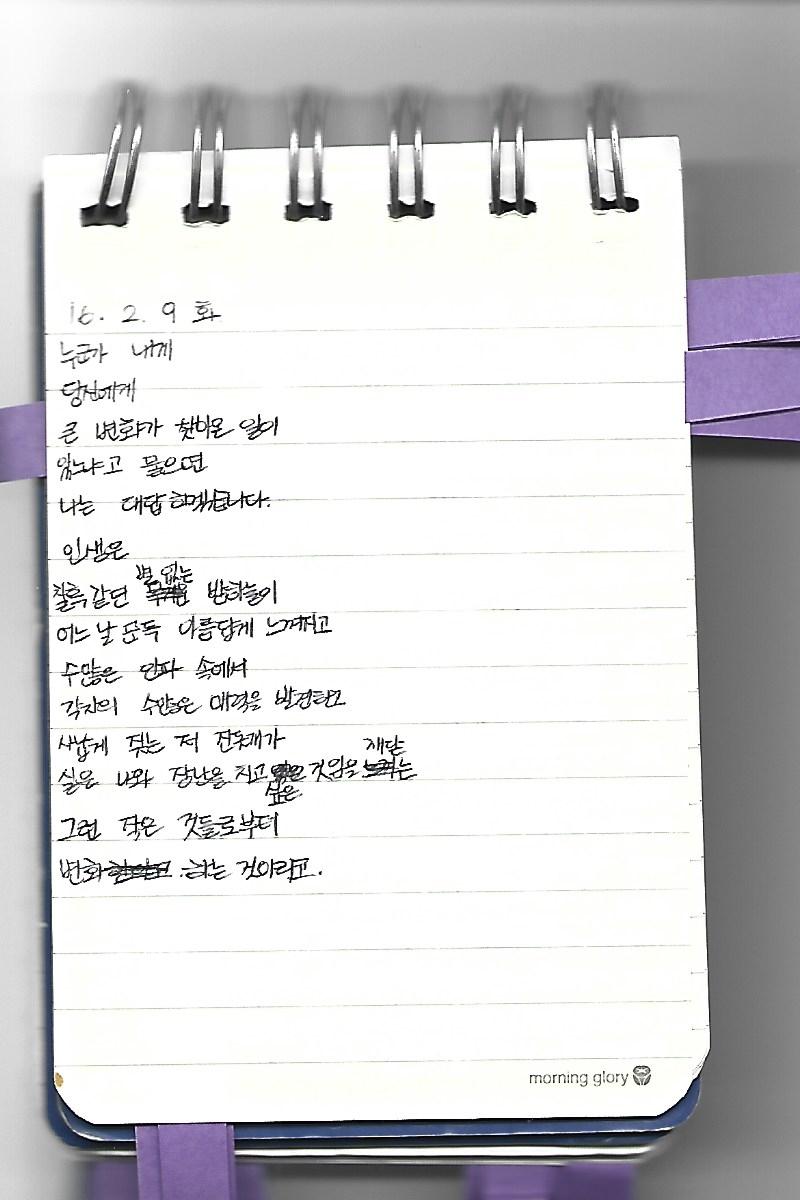 16. 2. 9 화
누군가 내게
당신에게
큰 변화가 찾아온 일이
있느냐고 물으면
나는 대답하겠습니다.
인생은
별 없는
칠흑같던 밤하늘이
어느 날 문득 아름답게 느껴지고
수많은 인파 속에서
각자의 수많은 매력을 발견하고
사납게 짖는 저 진돗개가
깨닫
실은 나와 장난을 치고 것임을 는
싶은
그런 작은 것들로부터
변화 하는 것이라고.
morning glory